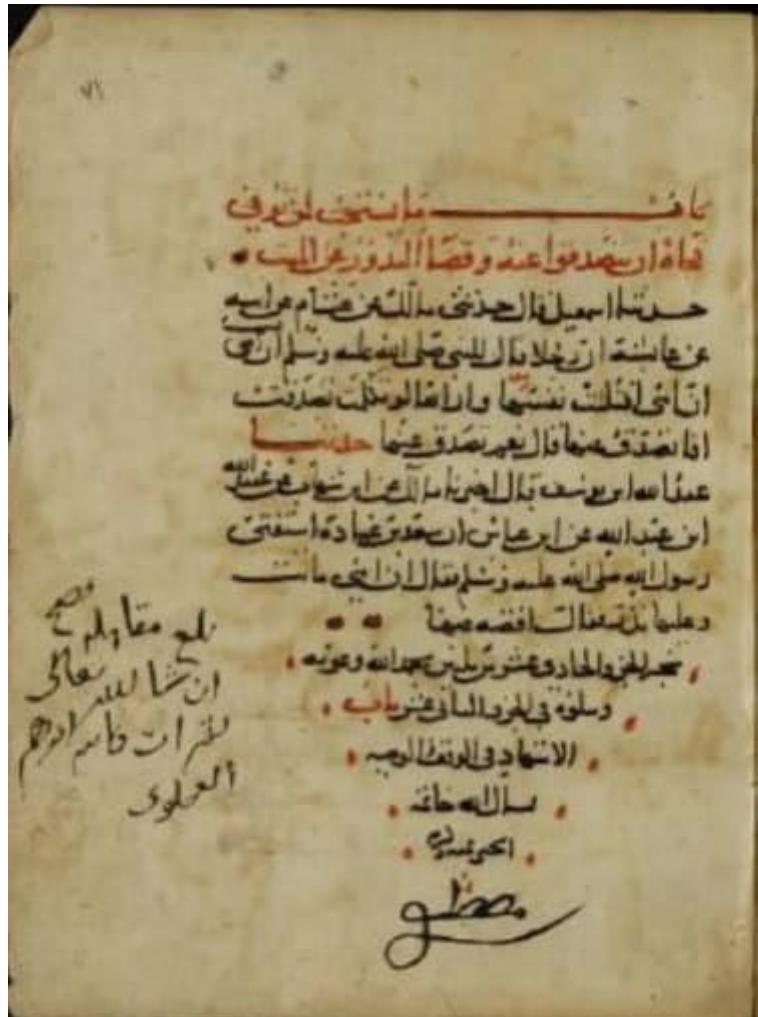 ٧١
باب ما يستحب لمن توفي
فجاة ان يتصدقوا عنه وقضا النذور عن الميت
حدثنا اسمعيل قال حدثني مالك عن هشام عن ابيه
عن عائشة ان رجلا قال للنبي صلى الله عليه وسلم ان
ان امي افتلتت نفسها واراها لو تكلمت تصدقت
افاتصدق عنها قال نعم تصدق عنها حدثنا
عبد الله ابن يوسف قال اخبرنا مالك عن ابن شهاب عن عبيد الله
ابن عبد الله عن ابن عباس ان سعد بن عبادة استفتى
رسول الله صلى الله عليه وسلم فقال ان امي ماتت
وعليها نذر فقال اقضه عنها
نجز الجزو الحادي عشر من ثلثين بحمد الله وعونه
وتتلوه في الجزو الثاني عشر باب
الاشهاد في الوقف والوصية
نسال الله خاتمة
الخير بمنه
بلغ مقابلة فصح
ان شا الله تعالى
قاسم ابراهم